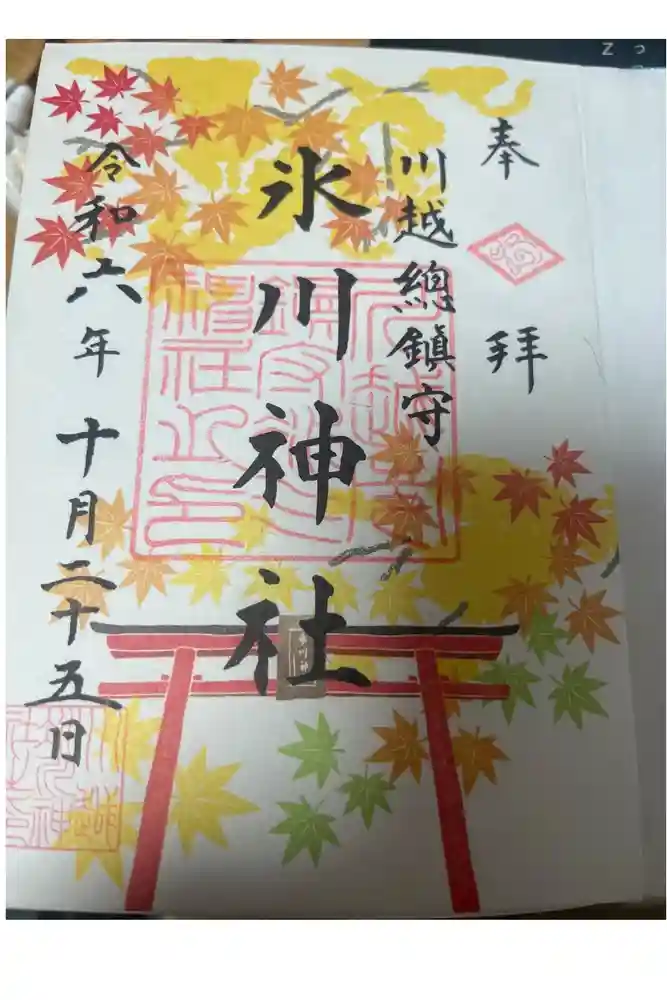 奉拝
川越總鎮守
氷川神社
令和六年十月二十五日